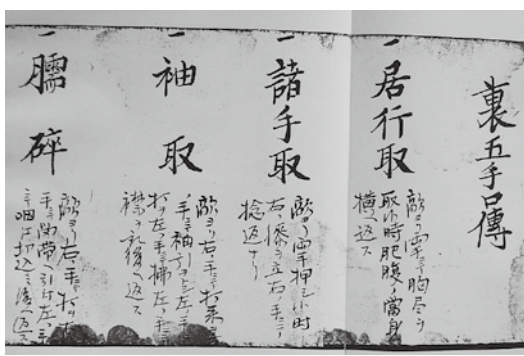 裏五手口傳
一居行取
敵ヨリ両手ニテ胸尽ヲ
取ル時肥腹ヲ當身
横ヘ返ス
一諸手取
敵ヨリ両手押ヘシ時
右ノ膝ヲ立右ノ手ニテ
捻返スナリ
一袖取
敵ヨリ右ノ手ニテ打来ル
手ニテ袖引
打ヲ左ノ手ニテ拂左ノ手ニテ
襟ヲ取後ヘ返ス
一臑碎
敵ヨリ右ノ手ニテ打
手ニテ 帯ヘ引付左ノ手
ニテ咽ニ打込ミ後ヘ返ス